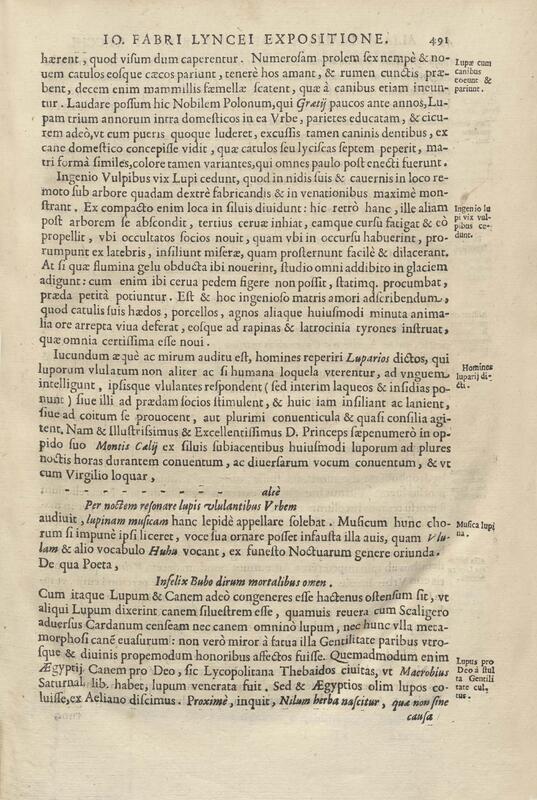 IO. FABRI LYNCEI EXPOSITIONE. 491
hærent, quod visum dum caperentur. Numerosam prolem sex nempè & no-
uem catulos eosque cæcos pariunt, tenerè hos amant, & rumen cunctis præ-
bent, decem enim mammillis fœmellæ scatent, quæ à canibus etiam ineun-
tur. Laudare possum hic Nobilem Polonum, qui Gratij paucos ante annos, Lu-
pam trium annorum intra domesticos in ea Vrbe, parietes educatam, & cicu-
rem adeò, vt cum pueris quoque luderet, excussis tamen caninis dentibus, ex
cane domestico concepisse vidit, quæ catulos seu lyciscas septem peperit, ma-
tri formâ similes, colore tamen variantes, qui omnes paulo post enecti fuerunt.
Lupæ cum
canibus
coeunt &
pariunt.
Ingenio Vulpibus vix Lupi cedunt, quod in nidis suis & cauernis in loco re-
moto sub arbore quadam dextrè fabricandis & in venationibus maximè mon-
strant. Ex compacto enim loca in siluis diuidunt: hic retrò hanc, ille aliam
post arborem se abscondit, tertius ceruæ inhiat, eamque cursu fatigat & cò
propellit, vbi occultatos socios nouit, quam vbi in occursu habuerint, pro-
rumpunt ex latebris, insiliunt miseræ, quam prosternunt facilè & dilacerant.
At si quæ flumina gelu obducta ibi nouerint, studio omni addibito in glaciem
adigunt: cum enim ibi cerua pedem figere non possit, statimq. procumbat,
præda petitâ potiuntur. Est & hoc ingenioso matris amori adscribendum,
quod catulis suis hædos, porcellos, agnos aliaque huiusmodi minuta animalia
ore arrepta viua deferat, eosque ad rapinas & latrocinia tyrones instruat,
quæ omnia certissima esse noui.
Ingenio lu
pi vix vul-
pibus ce-
dunt.
Iucundum æquè ac mirum auditu est, homines reperiri Luparios dictos, qui
luporum vlulatum non aliter ac si humana loquela vterentur, ad vnguem
intelligunt, ipsisque vlulantes respondent (sed interim laqueos & insidias po-
nunt) siue illi ad prædam socios stimulent, & huic iam insiliant ac lanient,
siue ad coitum se prouocent, aut plurimi conuenticula & quasi consilia agi-
tent. Nam & Illustrissimus & Excellentissimus D. Princeps sæpenumerò in op-
pido suo Montis Cælij ex siluis subiacentibus huiusmodi luporum ad plures
noctis horas durantem conuentum, ac diuersarum vocum conuentum, & vt
cum Virgilio loquar,
Homines
luparij di-
cti.
- - - - - - - - - altè
Per noctem resonare lupis vlulantibus Vrbem
audiuit, lupinam musicam hanc lepidè appellare solebat. Musicum hunc cho-
rum si impunè ipsi liceret, voce sua ornare posset infausta illa auis, quam Vlu-
lam & alio vocabulo Huhu vocant, ex funesto Noctuarum genere oriunda.
De qua Poeta,
Musica lupi
na.
Infelix Bubo dirum mortalibus omen.
Cum itaque Lupum & Canem adeò congeneres esse hactenus ostensum sit, vt
aliqui Lupum dixerint canem siluestrem esse, quamuis reuera cum Scaligero
aduersus Cardanum censeam nec canem omninò lupum, nec hunc vlla meta-
morphosi canē euasurum: non verò miror à fatua illa Gentilitate paribus vtros-
que & diuinis propemodum honoribus affectos fuisse. Quemadmodum enim
Ægyptij Canem pro Deo, sic Lycopolitana Thebaidos ciuitas, vt Macrobius
Saturnal. lib. habet, lupum venerata fuit. Sed & Ægyptios olim lupos co-
luisse, ex Aeliano discimus. Proximè, inquit, Nilum herba nascitur, quæ non sine
causa
Lupus pro
Deo à stul
ta Gentili
tate cul-
tus.